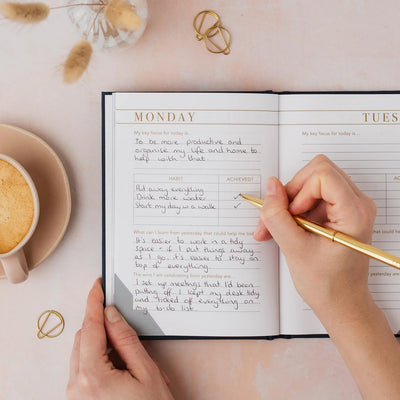 MONDAY
My key focus for today is...
To be more productive and
organise my life and home to
help with that.
HABIT ACHIEVED
Put away everything
Drink more water ✓
Start my day w a walk ✓
What can I learn from yesterday that could help me
It's easier to work in a tidy
space + if I put things away
as I go, it's easier to stay on
top of everything.
The wins I am celebrating from yesterday are...
I set up meetings that I'd been
putting off. I kept my desk tidy
and ticked off everything on
my to-do list.
TUES
My key focus for today is...